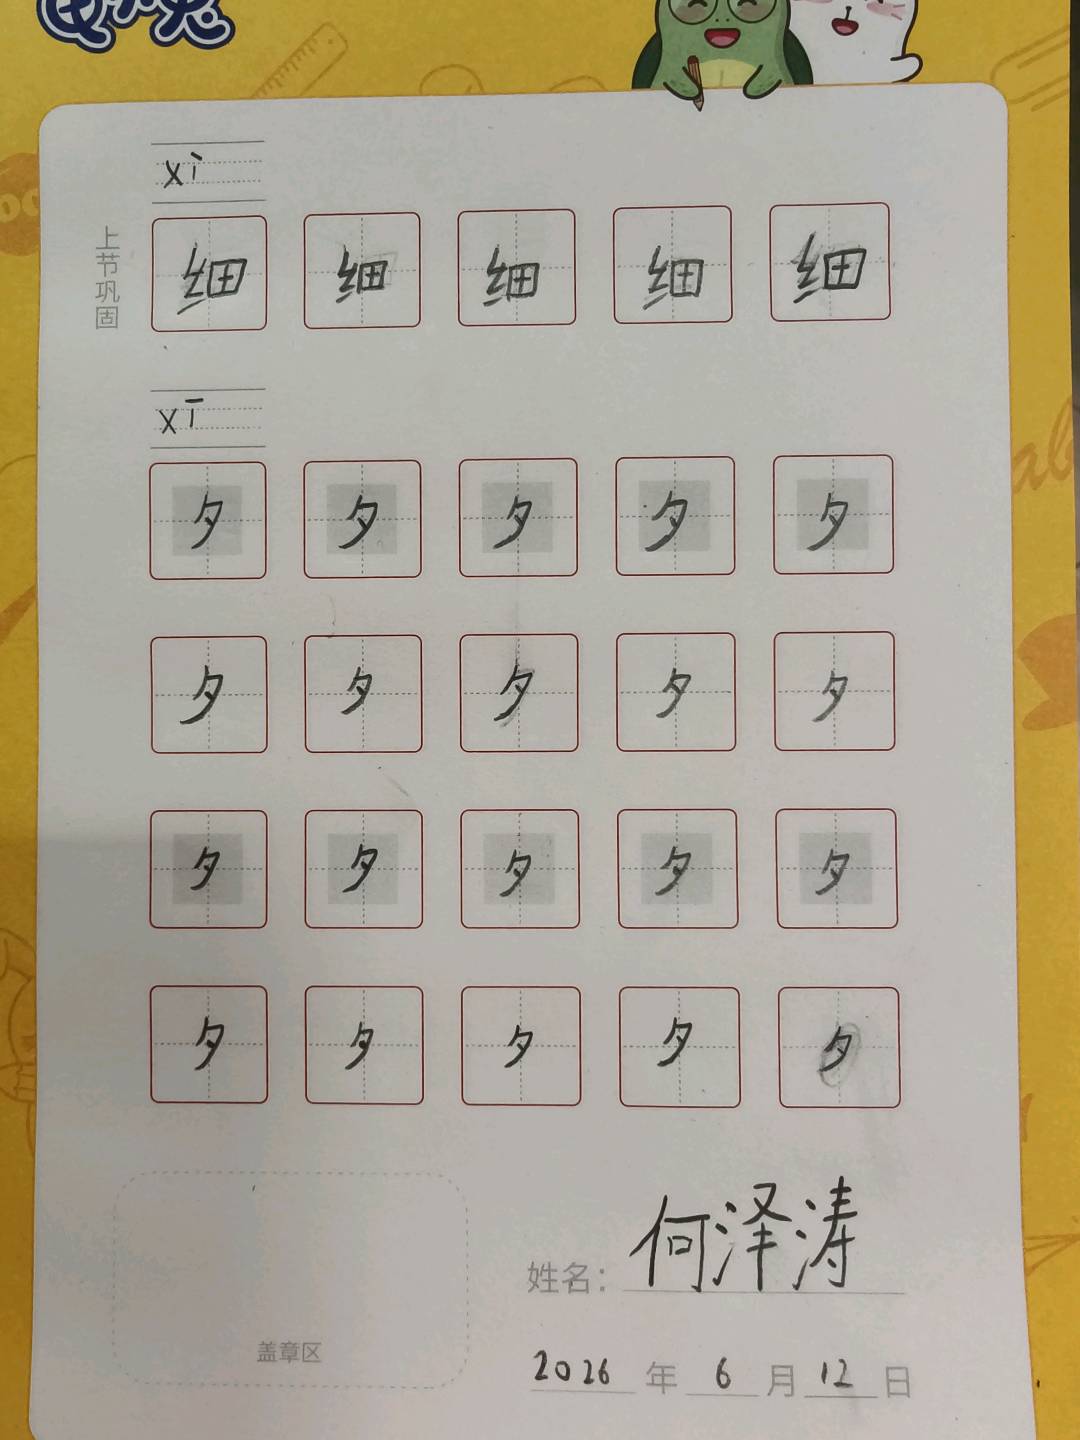 xì
上节巩固
细 细 细 细 细
xī
夕 夕 夕 夕 夕
夕 夕 夕 夕 夕
夕 夕 夕 夕 夕
夕 夕 夕 夕 夕
姓名：何泽涛
盖章区
2026 年 6 月 12 日